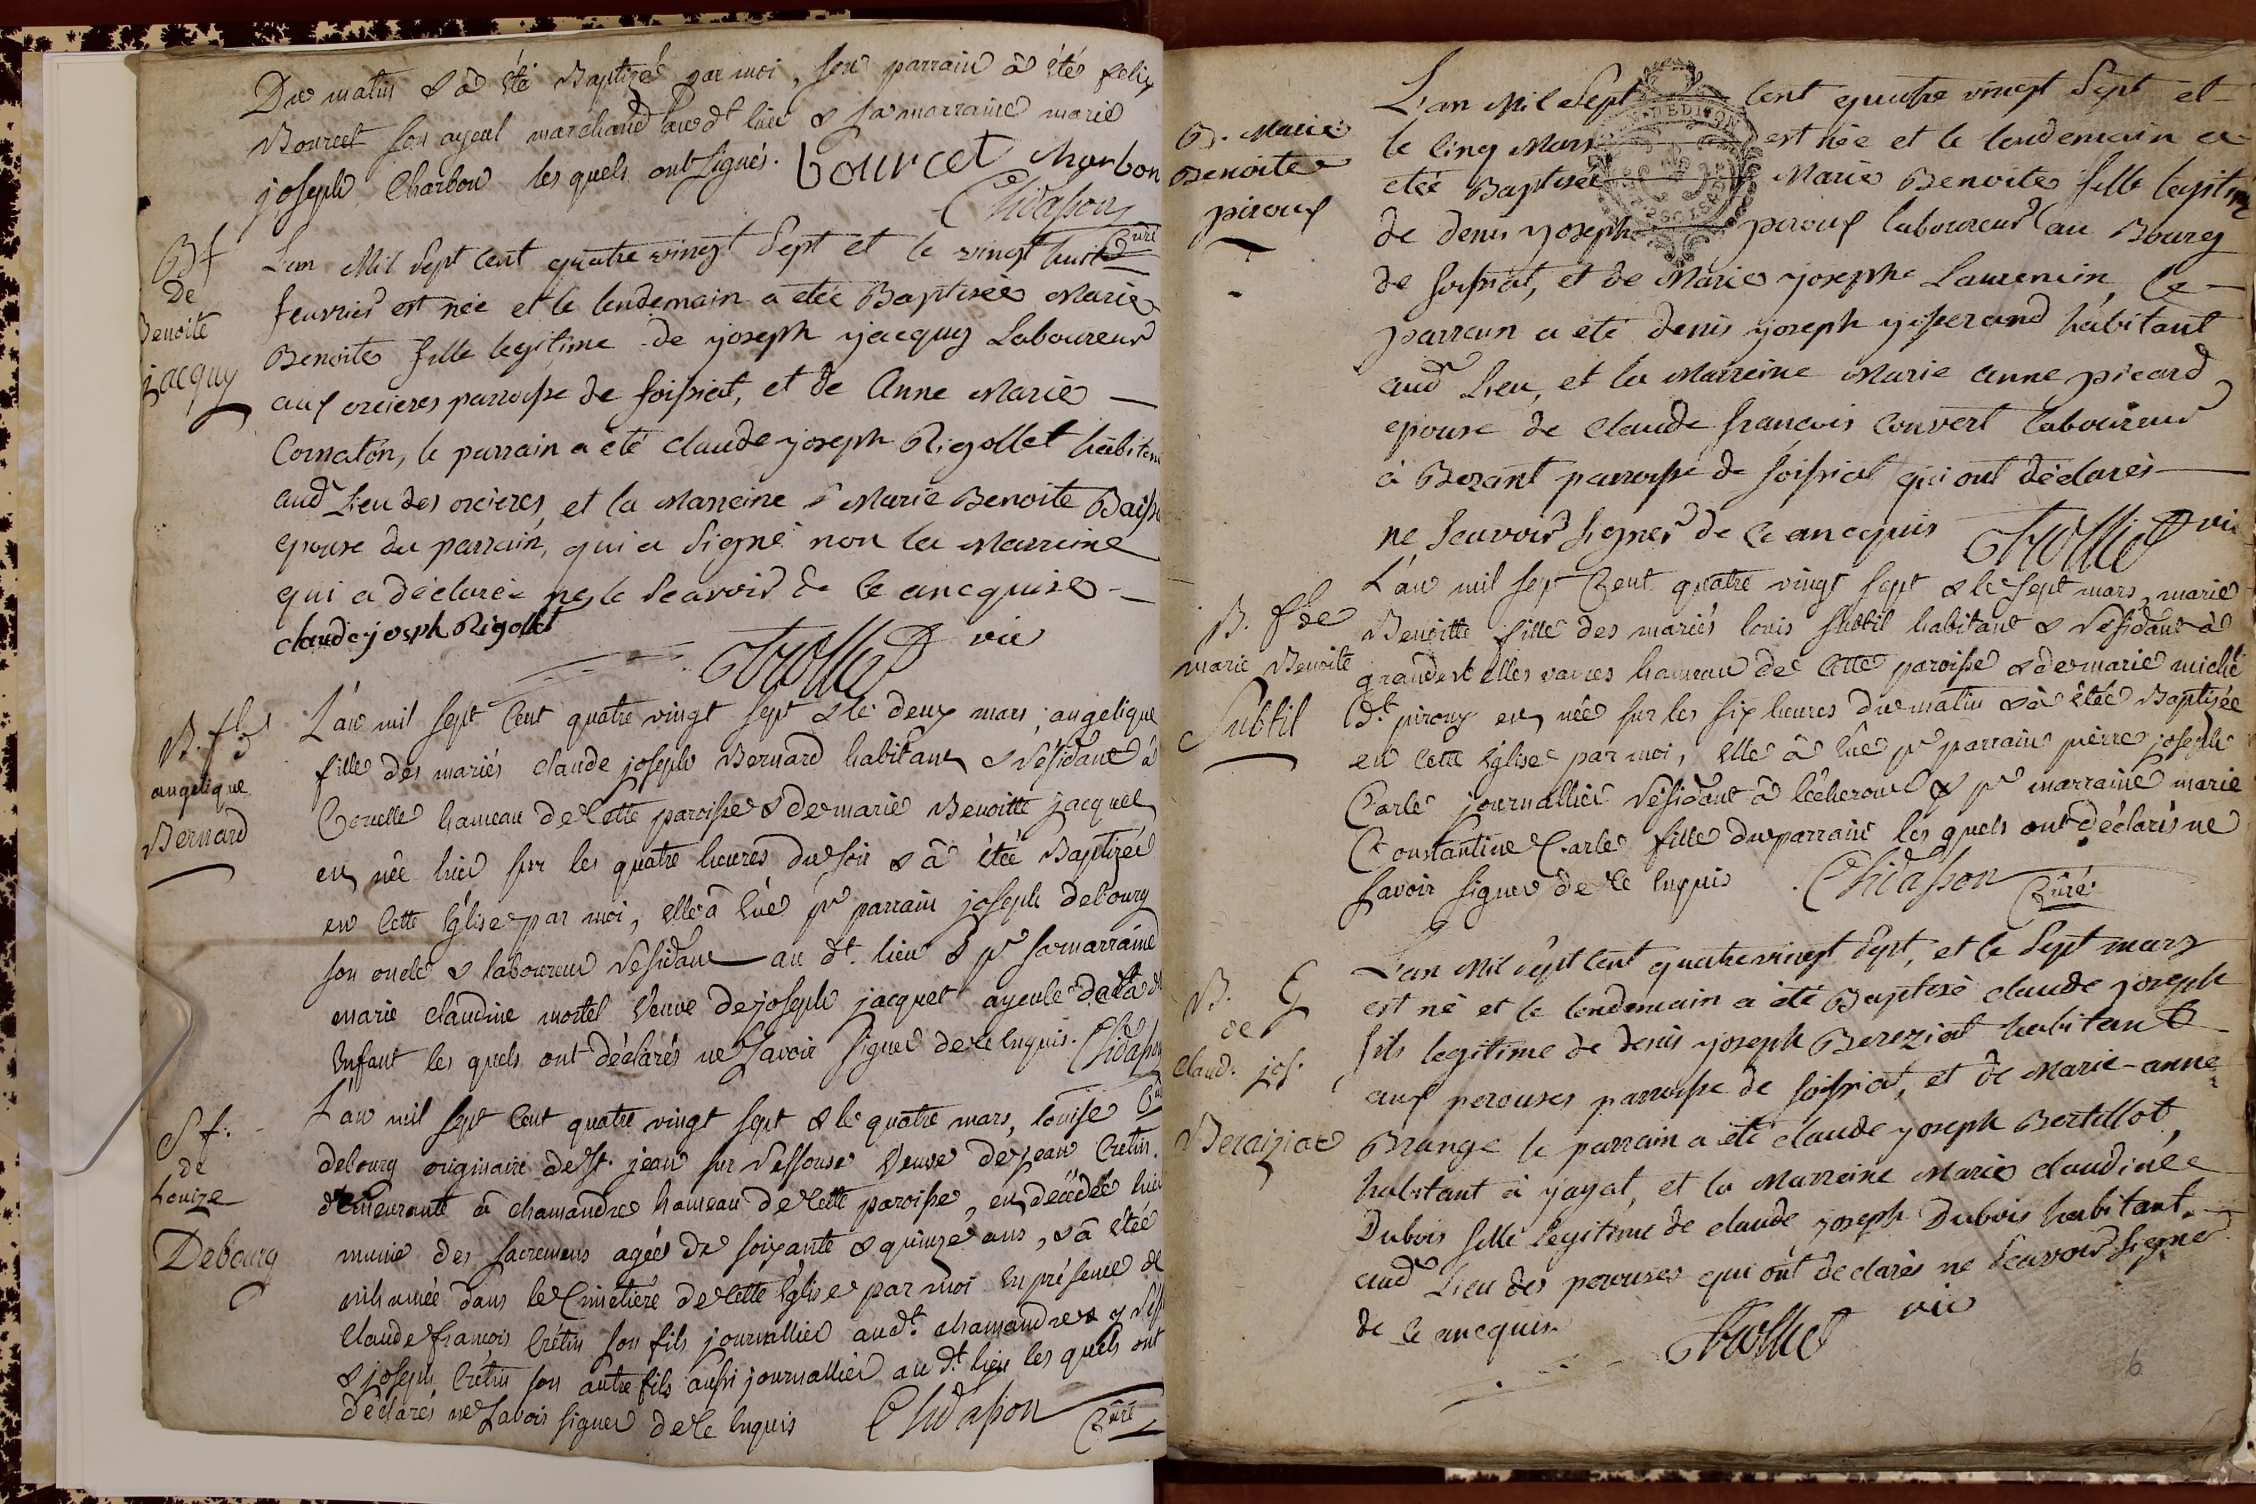 Du matin & à été Baptizé par moi, son parrain à étés felix
Bourcet son ayeul marchand audt lieu & sa marraine marie
joseph Charbon les quels ont signés. bourcet charbon
Chidasson
Curé
Bf
De
Benoite
jacquy
L'an Mil Sept Cent quatre vingt Sept et le vingt huit
feuvrier est née et le lendemain a etée Baptisée Marie
Benoite fille legitime de joseph jacquy Laboureur
aux orcieres parroisse de foissiat, et de Anne Marie
Cornaton, le parrain a été claude joseph Rigollet habitant
aud Lieu des orcieres, et la Marreine Marie Benoite
epouse du parrain, qui a Signé non la Marreine
qui a déclarée ne le Scavoir de Ce ancquise
claude joseph Rigollet
Trolliet vic
B. f. de
angelique
Bernard
L'an mil sept Cent quatre vingt sept & le deux mars, angelique
fille des mariés claude joseph Bernard habitant & résidant à
hameau de Cette paroisse & de marie Benoitte jacquet
en née hier sur les quatre heures du soir & à étée Baptizée
en Cette Eglise par moi, elle à Eue pr parrain joseph debourg
son oncle & laboureur résidant au dt. lieu & pr sa marraine
marie claudine mortel Veuve de joseph jacquet ayeule
Enfant les quels ont déclarés ne Savoir Signer de ce Enquis. Chidasson
Curé
S f.
de
Louize
Debourg
L'an mil sept Cent quatre vingt sept & le quatre mars, louise
debourg originaire de St. jean sur Vessouse Veuve de jean Cretin
demeurante à chamandre hameau de Cette paroisse, en décedée hier
munie des sacremens agée de soixante & quinze ans, & à étée
inhumée dans le Cimetiere de Cette Eglise par moi En présence de
Claude françois Crétin son fils journallier audt. chamandre
& joseph Cretin son autre fils aussi journallier au dt. lieu les quels ont
déclarés ne Savoir signer de ce Enquis Chidasson Curé
B. Marie
Benoite
piroux
L'an Mil Sept Cent quatre vingt Sept et
le Cinq Mars est née et le lendemain a
etée Baptisée Marie Benoite fille legitime
de denis joseph piroux laboureur au Bourg
de foissiat, et de Marie josephe Laurencin, Le
parrain a été denis joseph habitant
aud Lieu, et la Marreine Marie anne picard
epouse de Claude francois Convert laboureur
à Bezant parroisse de foissiat qui ont déclarés
ne Scavoir Signer de Ce ancquis Trolliet vic
B. f de
marie Benoite
Subtil
L'an mil sept Cent quatre vingt sept & le sept mars, marie
Benoitte fille des mariés louis subtil habitant & résidant à
hameau de Cette paroisse & de marie
piroux en née sur les six heures du matin & à étée Baptisée
en Cette Eglise par moi, Elle à Eue pr parrain pierre joseph
Carle journallier résidant à & pr marraine marie
Constantine Carle fille du parrain les quels ont déclarés ne
Savoir signer de Ce Enquis Chidasson Curé
B. G
de
Claud. jos.
Beraiziat
L'an Mil Sept Cent quatrevingt Sept, et le Sept mars
est né et le lendemain a été Baptisé claude joseph
fils legitime de denis joseph Bereziat habitant
aux perouses parroisse de foissiat, et de Marie-anne
Brange le parrain a été claude joseph Bertillot
habitant à jayat, et la Marreine Marie claudinée
Dubois fille legitime de claude joseph Dubois habitant
aud Lieu des perouses qui ont declarés ne Scavoir Signer
de Ce ancquis.
Trolliet vic
6